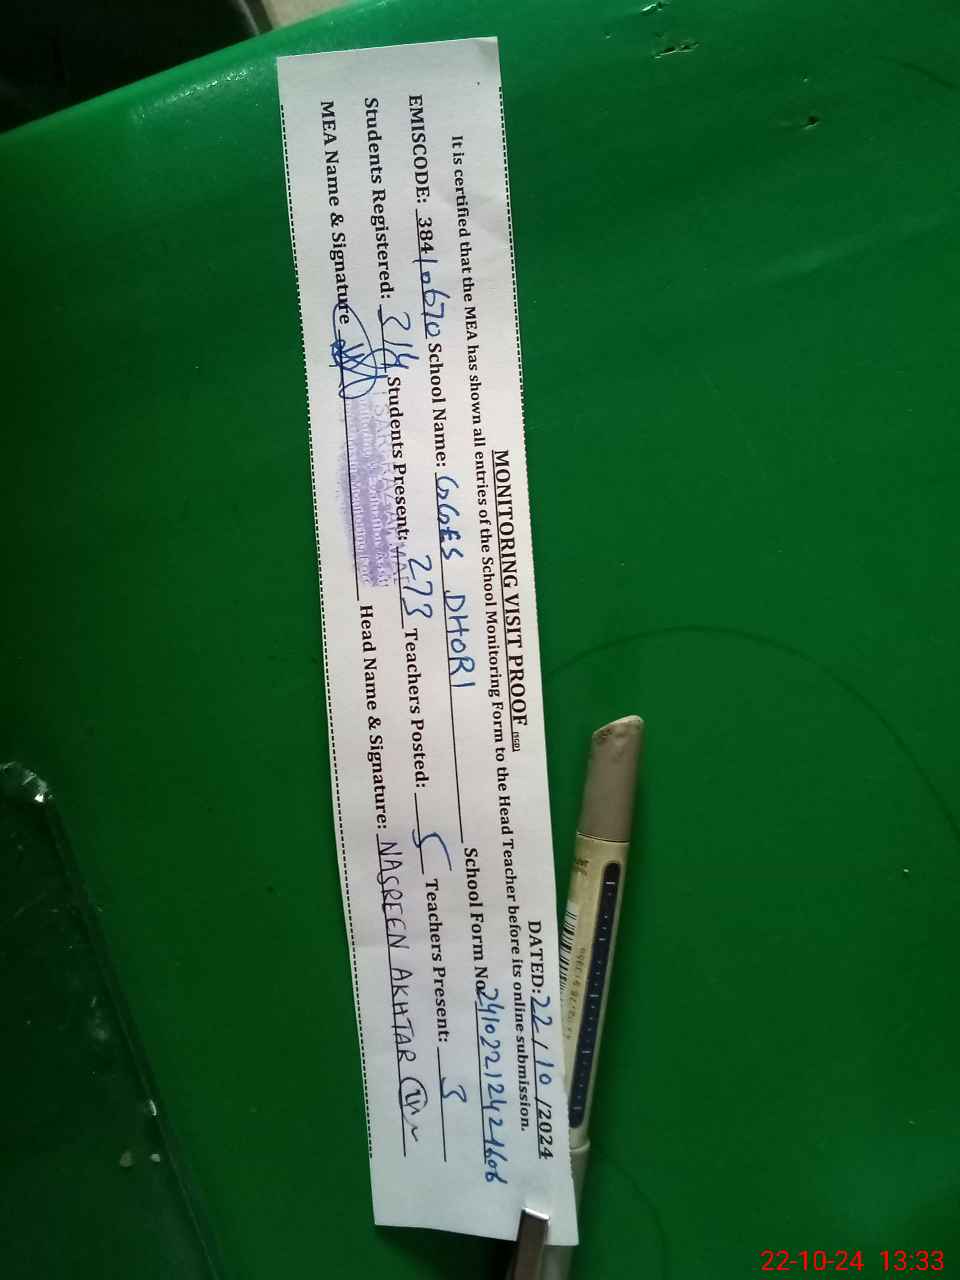 MONITORING VISIT PROOF (SGD) DATED: 22 / 10 /2024
It is certified that the MEA has shown all entries of the School Monitoring Form to the Head Teacher before its online submission.
EMISCODE: 38410670 School Name: GGES DHORI School Form No 24102212421606
Students Registered: 314 Students Present: 273 Teachers Posted: 5 Teachers Present: 3
MEA Name & Signature Head Name & Signature: NASREEN AKHTAR
22-10-24 13:33